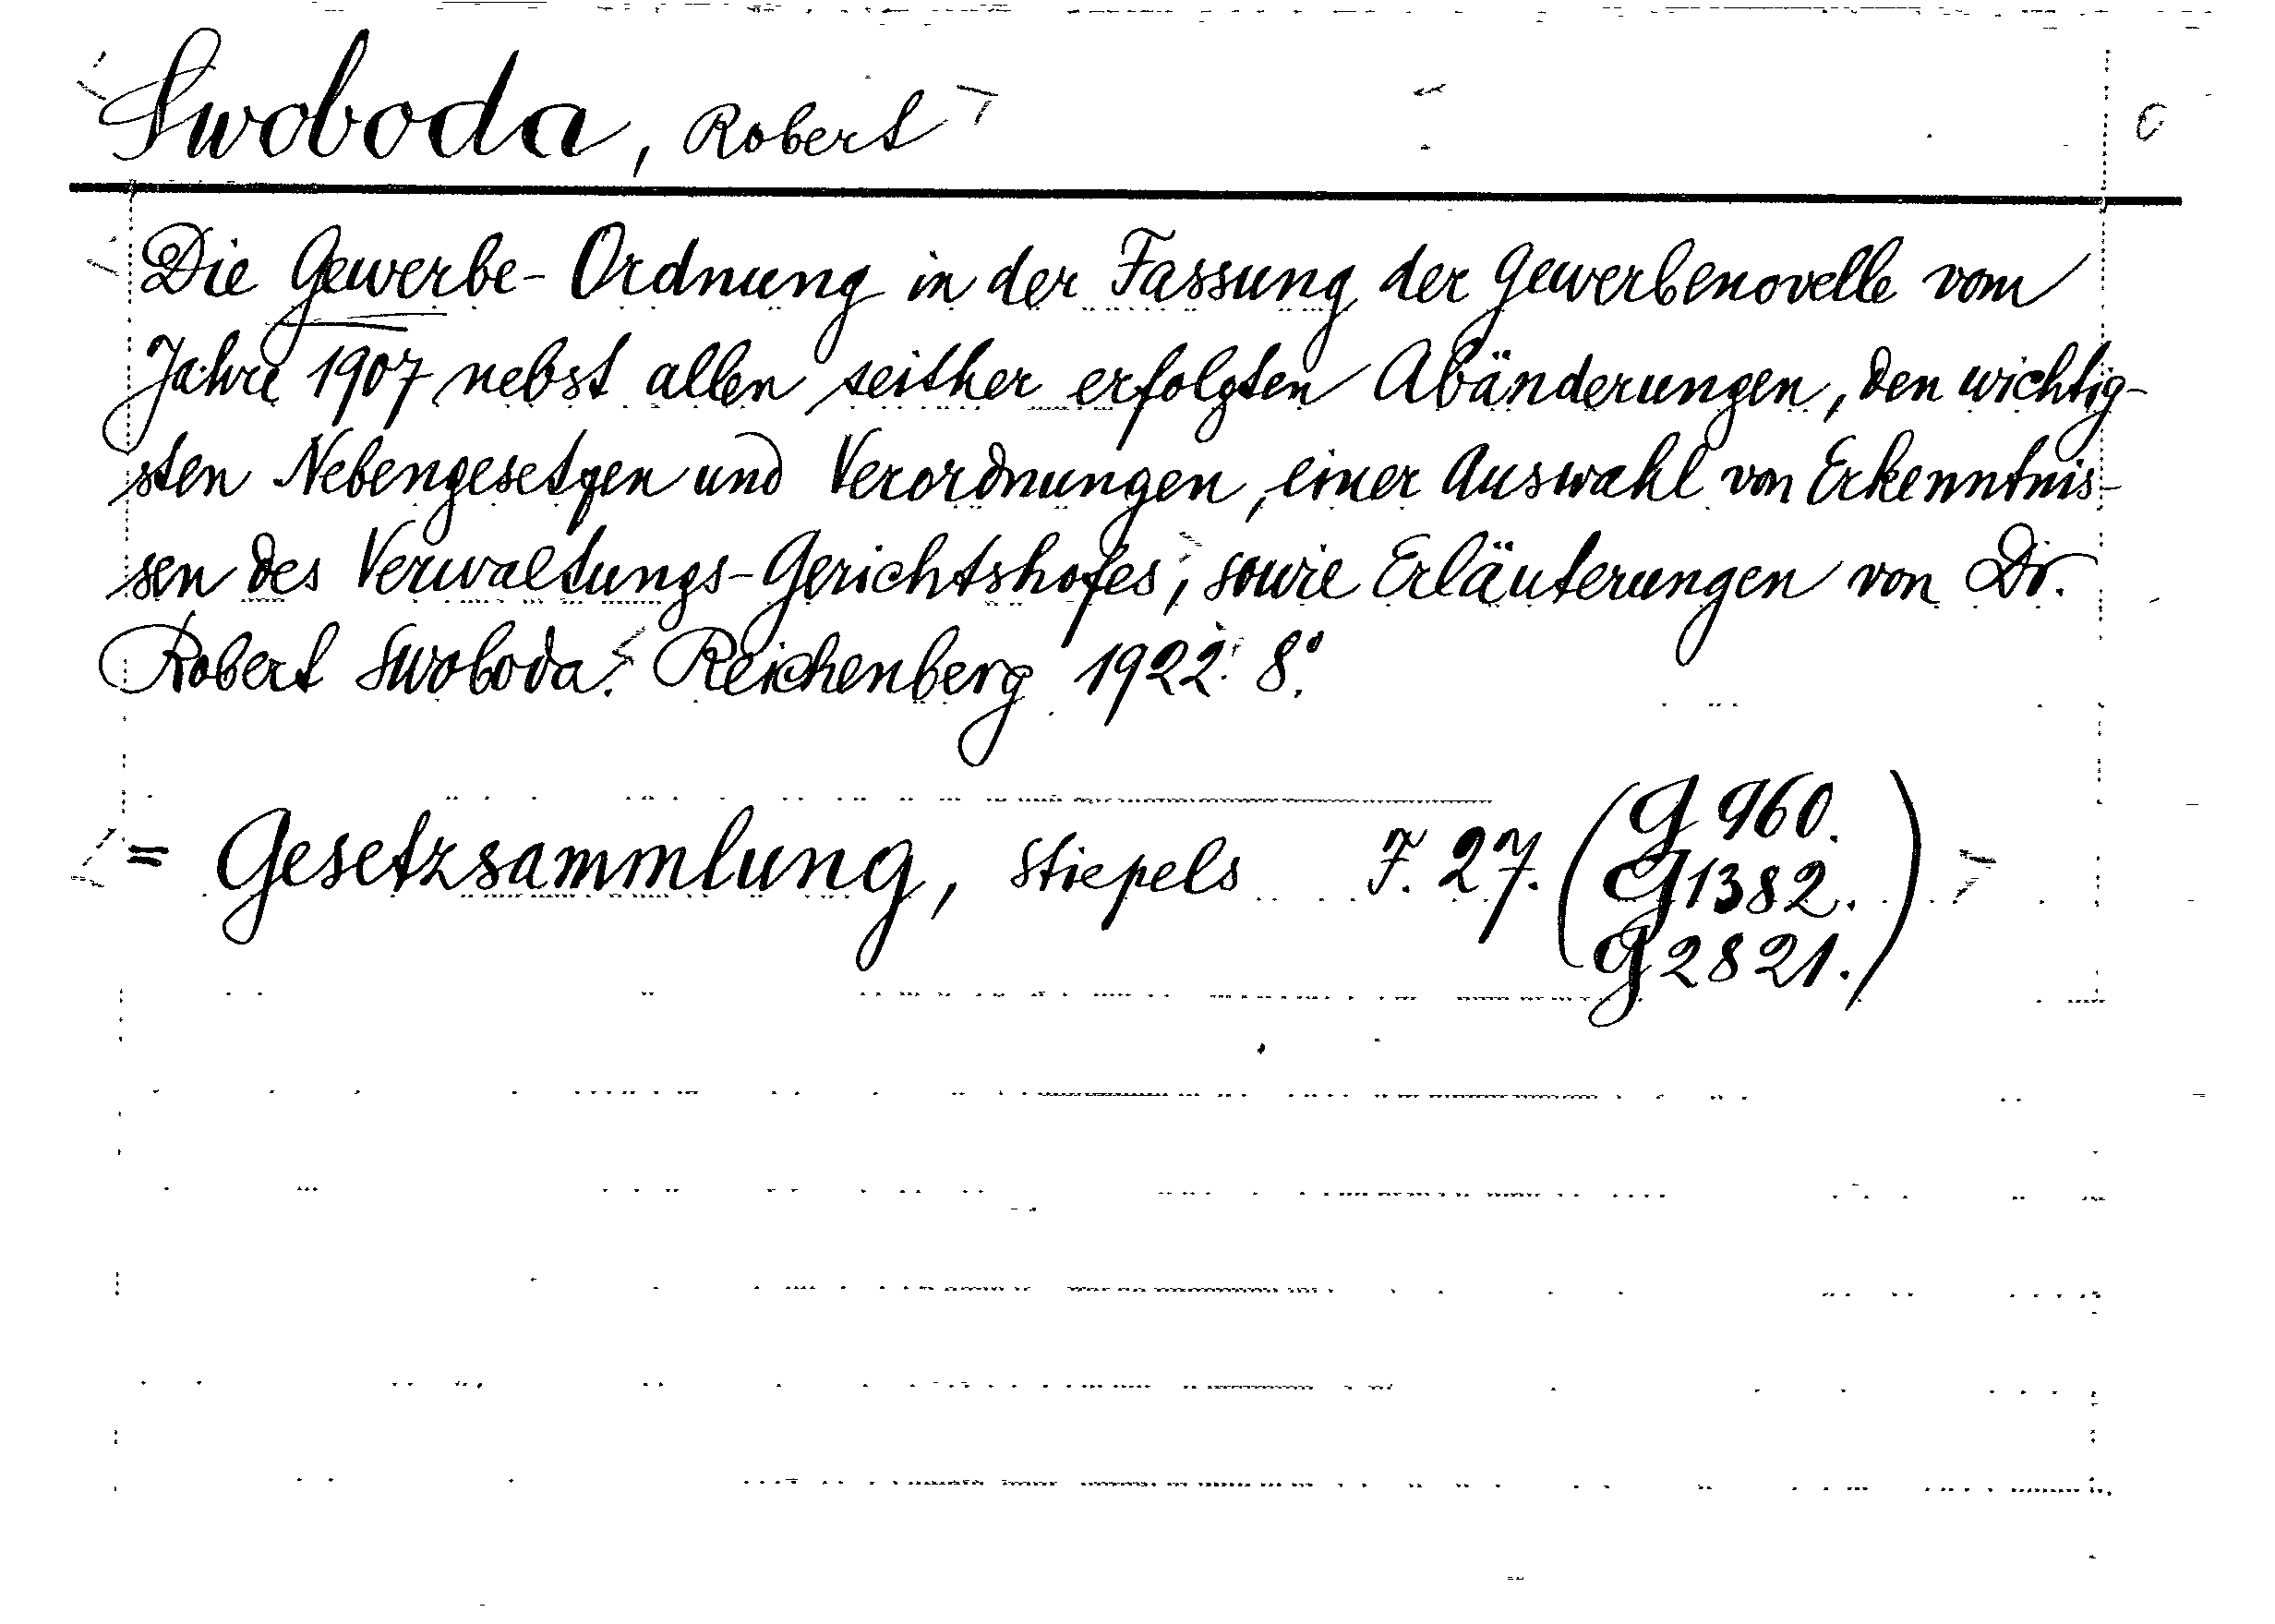 Swoboda, Robert
Die Gewerbe-Ordnung in der Fassung der Gewerbenovelle vom
Jahre 1907 nebst allen seither erfolgten Abänderungen, den wichtig-
sten Nebengesetzen und Verordnungen, einer Auswahl von Erkenntnis-
sen des Verwaltungs-Gerichtshofes, sowie Erläuterungen von Dr.
Robert Swoboda. Reichenberg 1922. 8°.
= Gesetzsammlung, Stiepels F. 27. (G 960.
G 1382.
G 2821.)